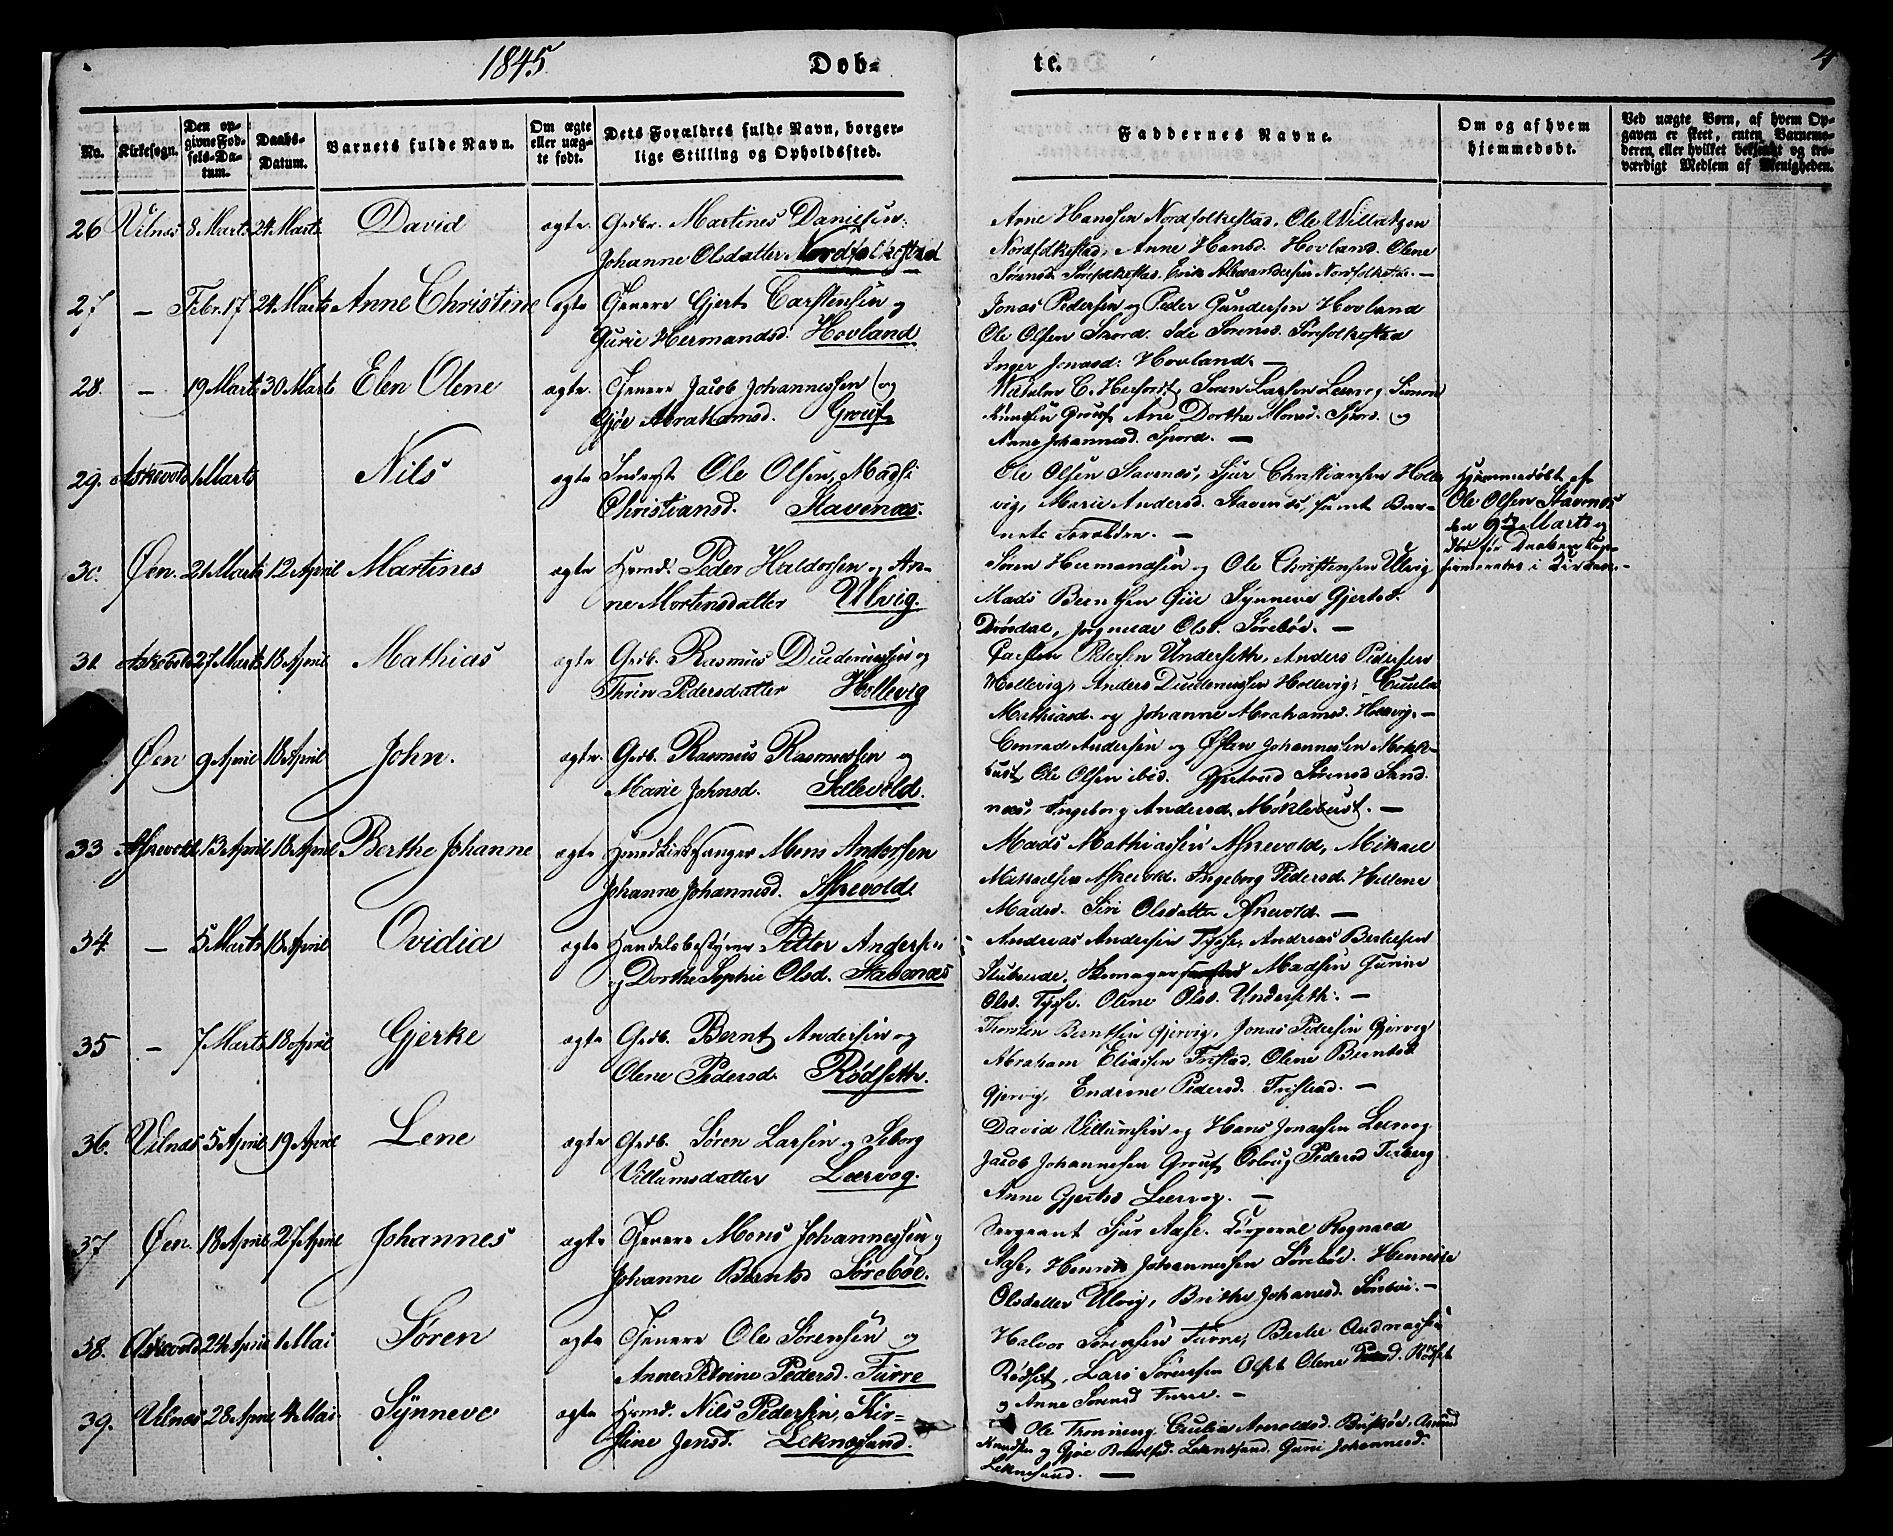 1845.
Døb-
te.
4
No.
Kirkesogn.
Den op-
givne Fød-
sels-Da-
tum.
Daabs-
Datum.
Barnets fulde Navn.
Om ægte
eller uæg-
te født.
Dets Forældres fulde Navn, borger-
lige Stilling og Opholdssted.
Faddernes Navne.
Om og af hvem
hjemmedøbt.
Ved uægte Børn, af hvem Op-
gaven er skeet, enten Barnemo-
deren eller hvilket bekjendt og tro-
værdigt Medlem af Menigheden.
26 Vilnæs 8 Marts 24 Marts David ægte Grdbr. Martines Danielsen
Johanne Olsdatter Nordfolkestad
Arne Hanssen Nordfolkestad, Ole Willatzen
Nordfolkestad, Anne Hansd. Hovland. Olene
Sørensd. Sørfolkestad. Erik Alexandersen Nordfolkest. —
27 — Febr. 17 24 Marts Anne Christine ægte Tjenere Gjert Carstensen og
Gurie Hermandsd. Hovland
Jonas Pedersen og Peder Gundersen Hovland
Ole Olsen Snord. Ide Sørensd. Sørfolkestad
Inger Jonasd. Hovland. —
28. — 19 Marts 30 Marts Elen Olene ægte. Tjenere Jacob Johannessen og
Gjøe Abrahamsd. Grouf.
Wilhelm C. Herfordt, Søren Larsen Leervog Simon
Knudsen Grouf Ane Dorthe Monsd. Sjord. og
Anne Johannesd. Snord. —
29. Askevold 1 Marts Nils ægte Inderst Ole Olsen, Madsi
Christiansd. Stavenæs.
Ole Olsen Stavenæs, Sjur Christiansen Holle-
vig, Marie Andersd. Stavenæs, samt Bar-
nets Forældre. —
Hjemmedøbt af
Ole Olsen Stavenæs
den 9de Marts og
døde før Daaben kon-
firmeretes i Kirken. —
30. Øen 21 Marts 12 April Martines ægte Husmd. Peder Haldorsen og An-
ne Mortensdatter Ulvig.
Søren Hermandsen og Ole Christensen Ulvig
Mads Berntsen Øen Synneve Gjertsd.
Drøsdal, Olsd. Sørebøe. —
31. Askevold 27 Marts 18 April Mathias ægte Grdb. Rasmus Didericksen og
Thrin Pedersdatter Hollevig
Carsten Pedersen Underseth, Anders Pedersen
Hollevig, Anders Hollevig, Cecilia
Mathiasd. og Johanne Abrahamsd. Hollevig. —
Øen 9 April 18 April John. ægte. Grdb. Rasmus Rasmussen og
Marie Johnsd. Sellevold.
Conrad Andersen og Østen Johannessen Mykle-
bust, Ole Olsen ibid. Gjertrud Sørensd Sand-
næs, Ingeborg Andersd. Myklebust. —
33 Askevold. 13 April 18 April Berthe Johanne ægte Huusmd. Kirkesanger Mons Andersen
Johanne Johannesd. Askevold.
Mads Mathiassen Askevold, Mikael
Mikaelsen Askevold. Ingeborg Pedersd. Hellene
Madsd. Siri Olsdatter Askevold. —
34. — 5 Marts 18 April Ovidia ægte Handelsbestyrer Petter Andersen
og Dorthe Sophie Olsd. Stavenæs
Andreas Andersen Tysse, Andreas Bertelsen
Madsen Gurine
Olsd. Tysse. Olene Olsd. Underseth. —
35 — 7 Marts 18 April Gjerke ægte Grdb. Bernt Andersen og
Olene Pedersd. Rødseth.
Thorsten Berntsen Gjervig, Jonas Pedersen Gjervig
Abraham Eliassen Tristad, Olene Berntsd.
Gjervig, Endrine Pedersd. Tristad. —
36. Vilnæs 5 April 19 April Lene ægte Grdb. Søren Larsen og Siborg
Villumsdatter Leervog.
David Villumsen og Hans Jonassen Leervog
Jacob Johannessen Grouf, Oloug Pedersd
Anne Gjertsd Leervog. —
37 Øen. 18 April 27 April Johannes ægte Tjenere Mons Johannessen og
Johanne Berntsd Sørebøe.
Sergeant Sjur Aase. Corporal Ragnald
Aase, Henrik Johannessen Sørebøe. Henrikke
Olsdatter Ulvig, Brithe Johannesd. Sørebøe. —
38. Askevold 24 April 1 Mai Søren ægte Tjenere Ole Sørensen og
Anne Petrine Pedersd. Furre
Halvor Sørensen Furre, Bertle Andreassen
Rødset, Lars Sørensen Olene Pedersd. Rødset
og Anne Sørensd Furre. —
39. Vilnæs 28 April 4 Mai Synneve ægte Husmd. Nils Pedersen, Kir-
stine Jensd. Leknesund.
Ole Thronning. Cecilia Arnoldsd. Buskøe. Amund
Knudsen og Gjøe Leknesund. Guri Johannesd.
Leknesund. —